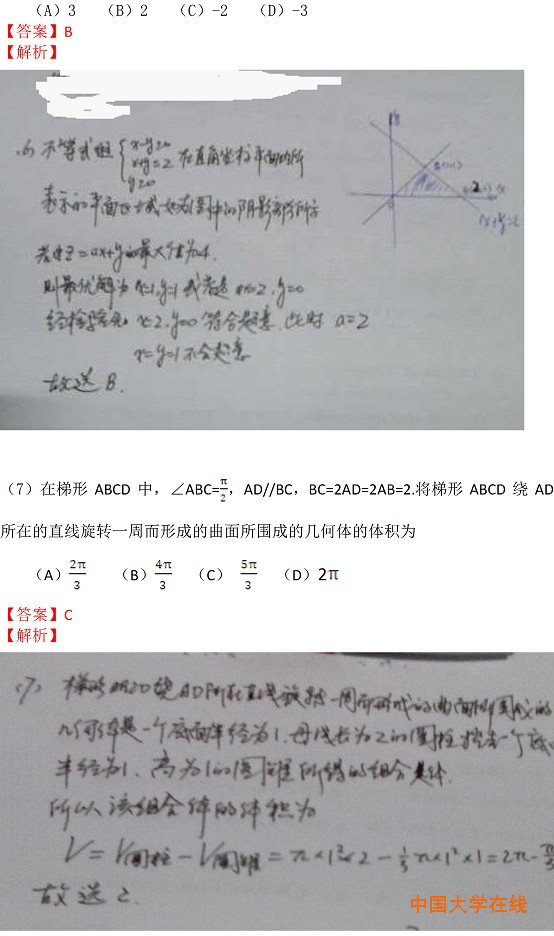 （A）3 （B）2 （C）-2 （D）-3
【答案】B
【解析】
(6) 不等式组 { x-y≥0 x+y≤2 y≥0 在直角坐标平面内所
表示的平面区域如右图中的阴影部分所示
若z=ax+y的最大值为4.
则最优解为x=1,y=1或者是x=2,y=0
经检验 x=2,y=0符合题意,此时 a=2
x=y=1不合题意
故选B.
（7）在梯形 ABCD 中，∠ABC=π/2，AD//BC，BC=2AD=2AB=2.将梯形 ABCD 绕 AD
所在的直线旋转一周而形成的曲面所围成的几何体的体积为
（A）2π/3 （B）4π/3 （C）5π/3 （D）2π
【答案】C
【解析】
(7) 梯形ABCD绕AD所在直线旋转一周而形成的曲面所围成的
几何体是一个底面半径为1,母线长为2的圆柱挖去一个底
半径为1、高为1的圆锥所得的组合体.
所以该组合体的体积为
V=V圆柱-V圆锥=π×1²×2-1/3π×1²×1=2π-
故选C.
中国大学在线